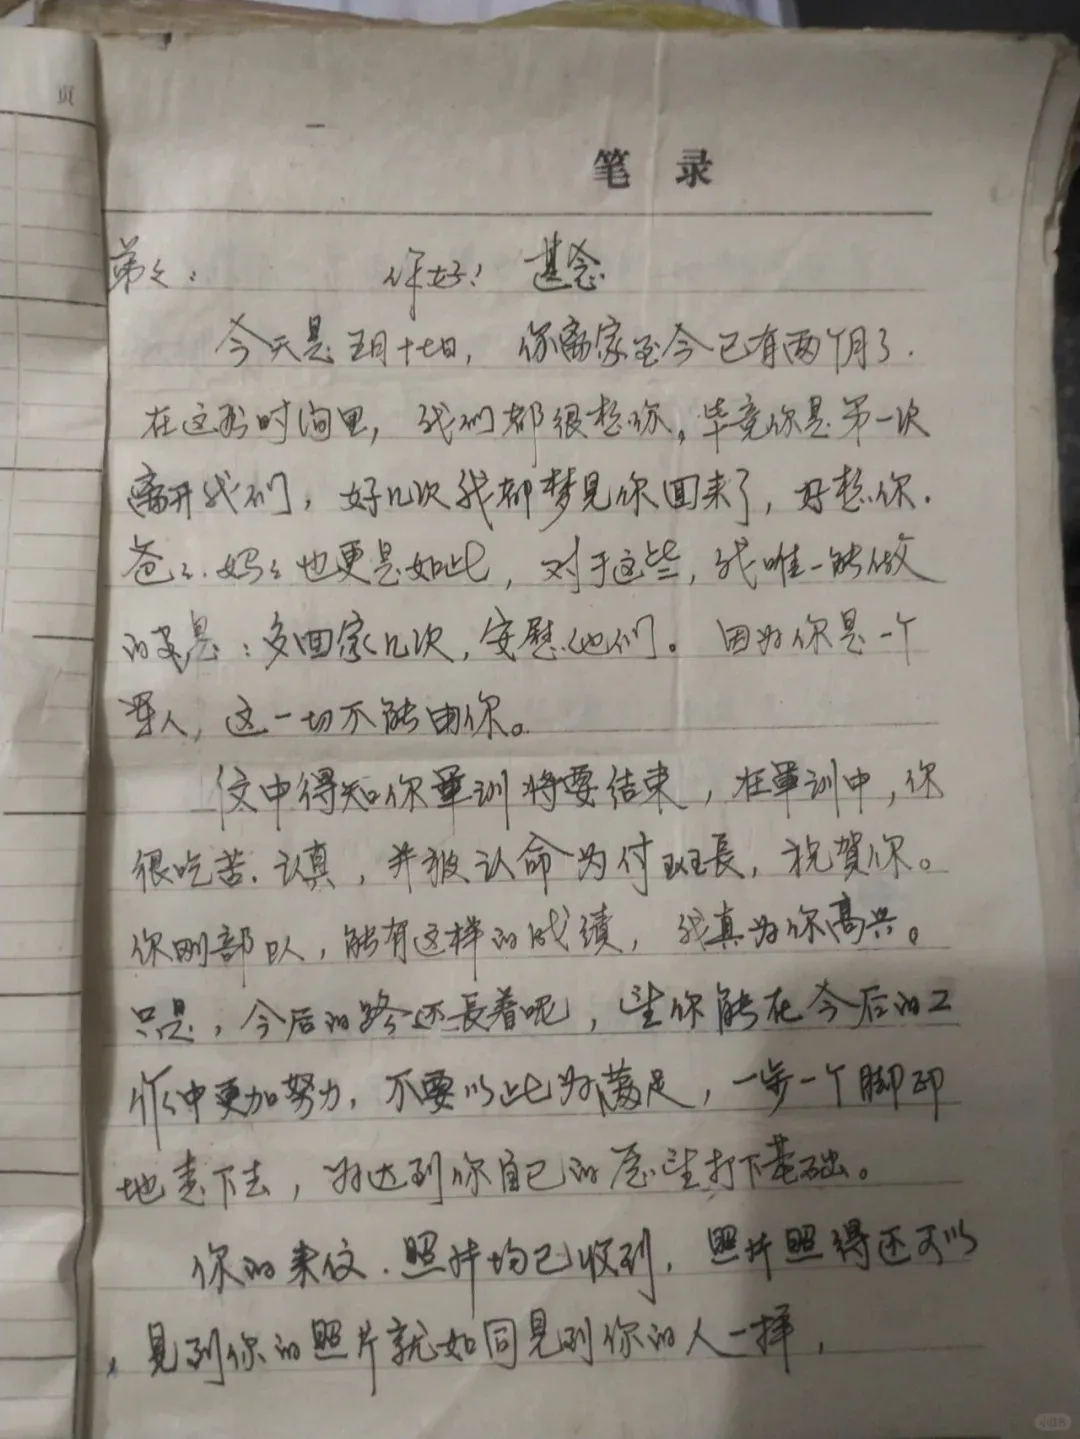 页
笔 录
弟弟: 你好! 甚念
今天是五月十七日, 你离家至今已有两个月了.
在这段时间里, 我们都很想你。毕竟你是第一次
离开我们, 好几次我都梦见你回来了, 好想你.
爸爸. 妈妈也更是如此, 对于这些, 我唯一能做
的更是: 多回家几次, 安慰他们。因为你是一个
军人, 这一切不能由你。
信中得知你军训将要结束, 在军训中, 你
很吃苦. 认真, 并被认命为付班長, 祝賀你。
你刚部队, 能有这样的成绩, 我真为你高兴。
只是, 今后的路还長着呢, 望你能在今后的工
作中更加努力, 不要以此为满足, 一步一个脚印
地走下去, 为达到你自己的愿望打下基础。
你的来信. 照片均已收到, 照片照得还可以
见到你的照片就如同见到你的人一样,
小红书